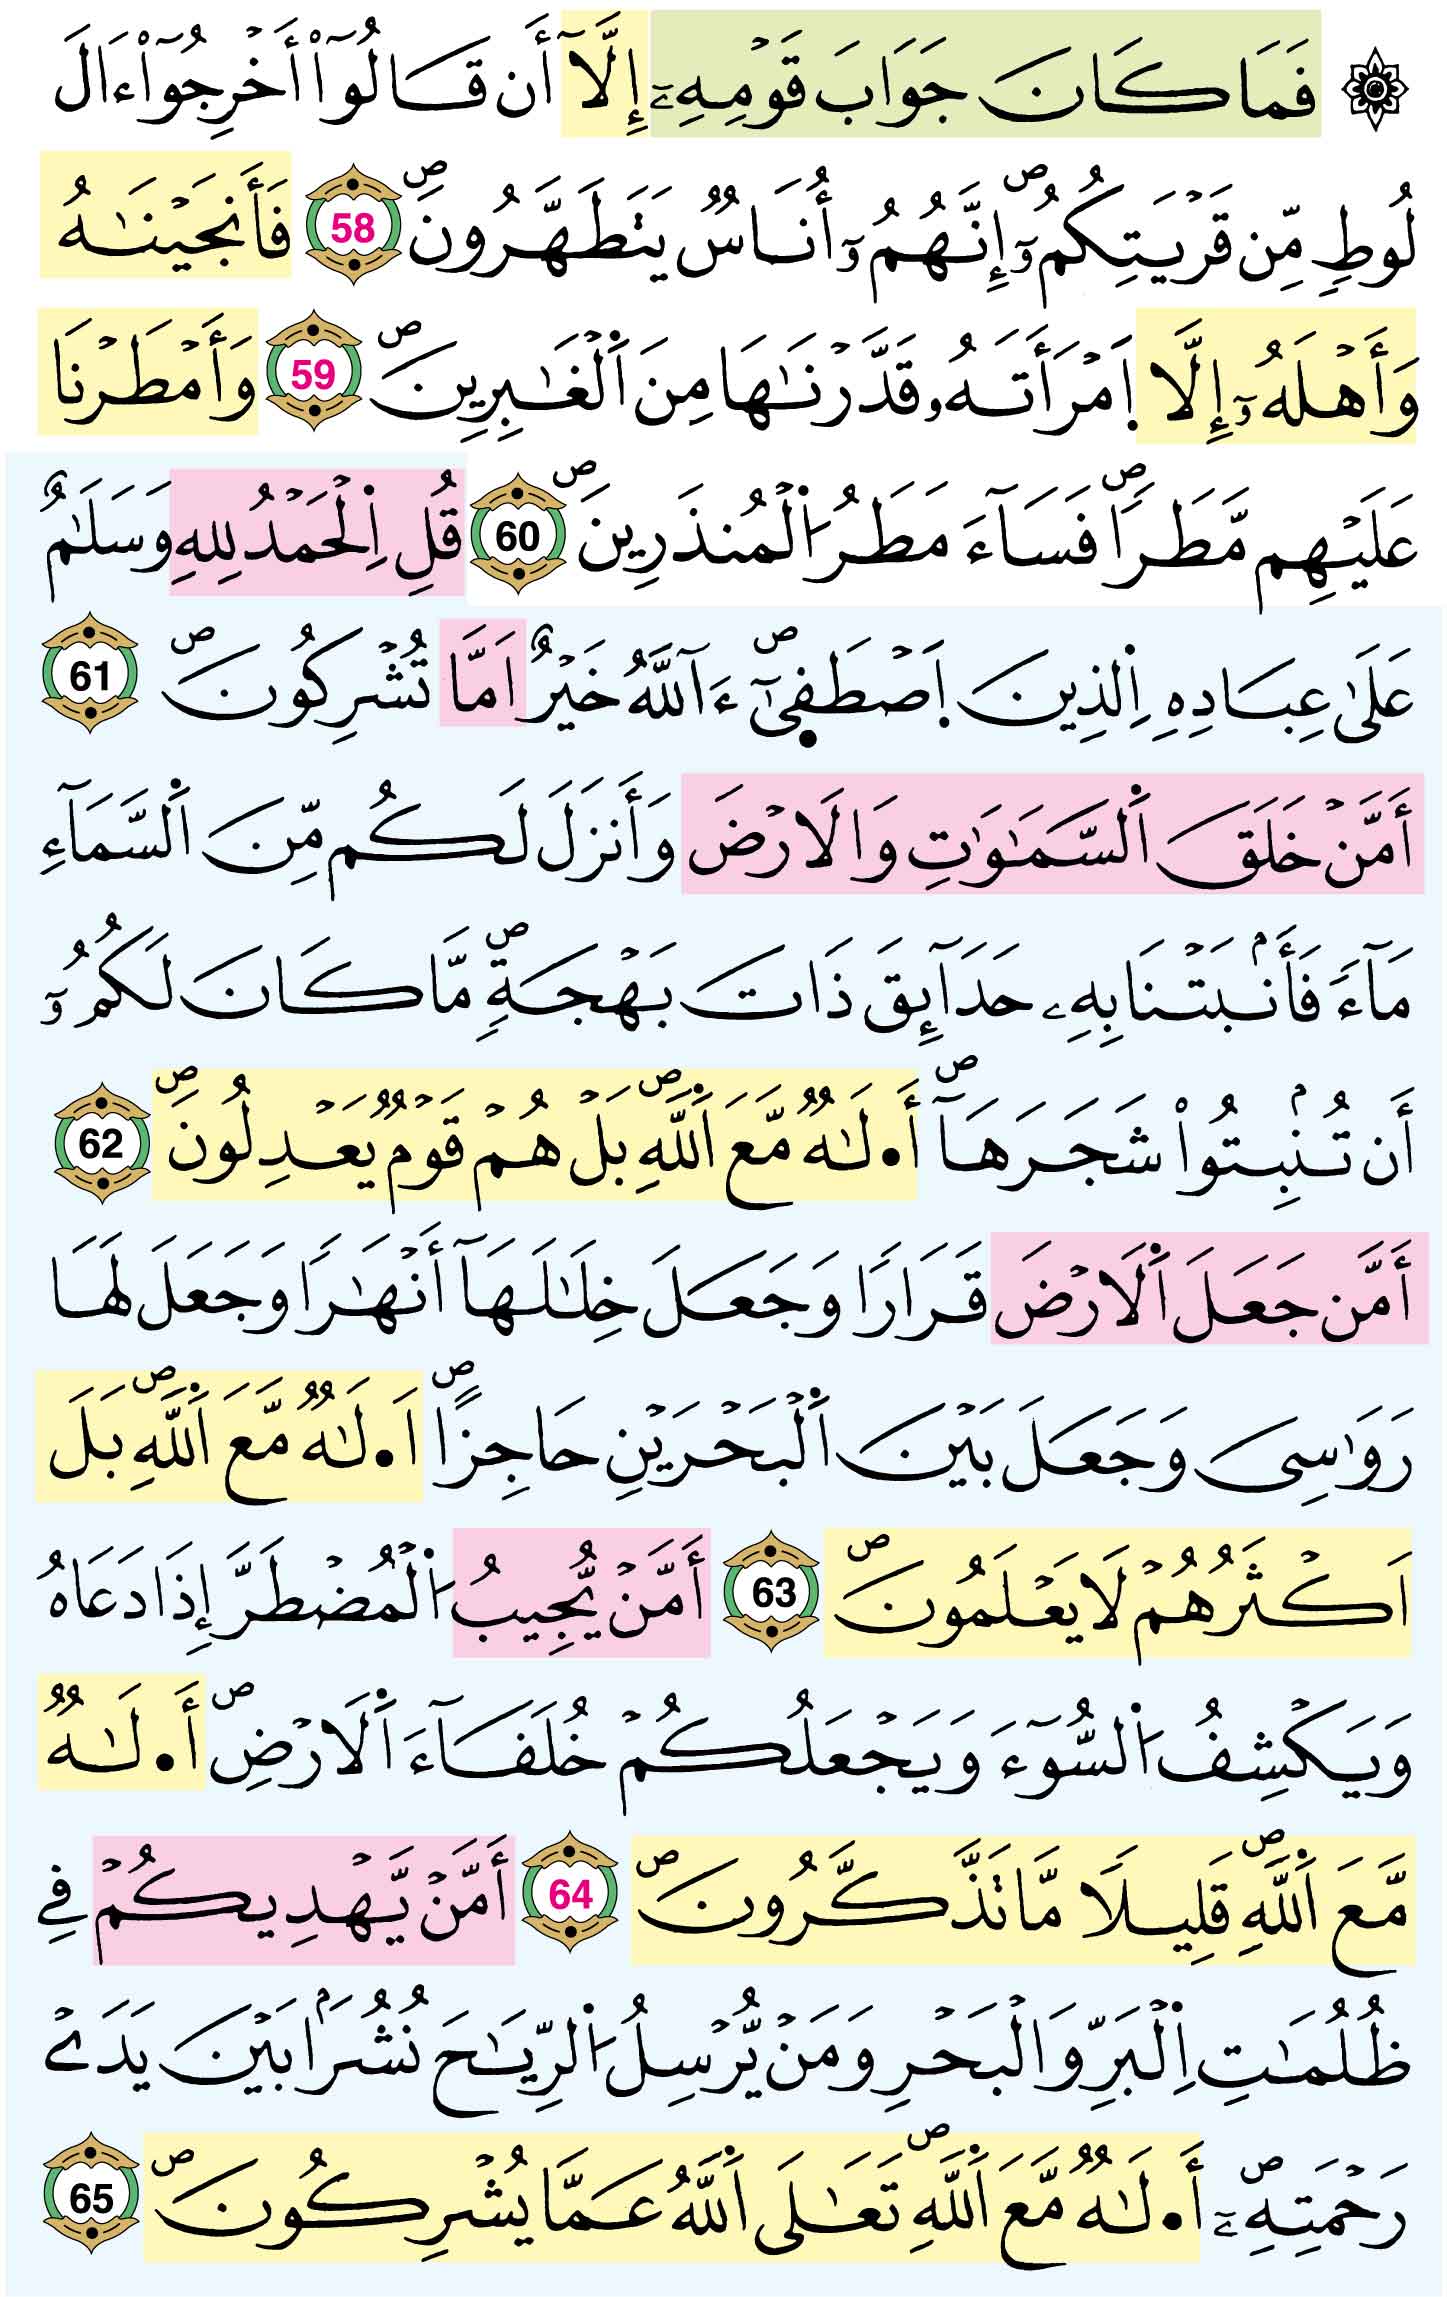 فَمَا كَانَ جَوَابَ قَوْمِهِۦٓ إِلَّآ أَن قَالُوٓا۟ أَخْرِجُوٓا۟ ءَالَ
لُوطٍ مِّن قَرْيَتِكُمُۥٓ ۖ إِنَّهُمُۥٓ أُنَاسٌ يَتَطَهَّرُونَ ۖ 58 فَأَنجَيْنَٰهُ
وَأَهْلَهُۥٓ إِلَّا اَ۪مْرَأَتَهُۥ قَدَّرْنَٰهَا مِنَ اَ۬لْغَٰبِرِينَ ۖ 59 وَأَمْطَرْنَا
عَلَيْهِم مَّطَرًا ۖ فَسَآءَ مَطَرُ اُ۬لْمُنذَرِينَ ۖ 60 قُلِ اِ۬لْحَمْدُ لِلهِ وَسَلَٰمٌ
عَلَىٰ عِبَادِهِ اِ۬لذِينَ اَ۪صْطَف۪ىٰٓ ۖ ءَآللَّهُ خَيْرٌ اَمَّا تُشْرِكُونَ ۖ 61
أَمَّنْ خَلَقَ اَ۬لسَّمَٰوَٰتِ وَالَارْضَ وَأَنزَلَ لَكُم مِّنَ اَ۬لسَّمَآءِ
مَآءً فَأَنۢبَتْنَا بِهِۦ حَدَآئِقَ ذَاتَ بَهْجَةٍ ۖ مَّا كَانَ لَكُمُۥٓ
أَن تُنۢبِتُوا۟ شَجَرَهَآ ۖ أَ•لَٰهٌ مَّعَ اَ۬للَّهِ ۖ بَلْ هُمْ قَوْمٌ يَعْدِلُونَ ۖ 62
أَمَّن جَعَلَ اَ۬لَارْضَ قَرَارًا وَجَعَلَ خِلَٰلَهَآ أَنْهَٰرًا وَجَعَلَ لَهَا
رَوَٰسِىَ وَجَعَلَ بَيْنَ اَ۬لْبَحْرَيْنِ حَاجِزًا ۖ اَ•لَٰهٌ مَّعَ اَ۬للَّهِ ۖ بَلَ
اَكْثَرُهُمْ لَا يَعْلَمُونَ ۖ 63 أَمَّنْ يُّجِيبُ اُ۬لْمُضْطَرَّ إِذَا دَعَاهُ
وَيَكْشِفُ اُ۬لسُّوٓءَ وَيَجْعَلُكُمْ خُلَفَآءَ اَ۬لَارْضِ ۖ أَ•لَٰهٌ
مَّعَ اَ۬للَّهِ ۖ قَلِيلًا مَّا تَذَّكَّرُونَ ۖ 64 أَمَّنْ يَّهْدِيكُمْ فِے
ظُلُمَٰتِ اِ۬لْبَرِّ وَالْبَحْرِ وَمَنْ يُّرْسِلُ اُ۬لرِّيَٰحَ نُشُرًۢا بَيْنَ يَدَےْ
رَحْمَتِهِۦٓ ۖ أَ•لَٰهٌ مَّعَ اَ۬للَّهِ ۖ تَعَٰلَى اَ۬للَّهُ عَمَّا يُشْرِكُونَ ۖ 65